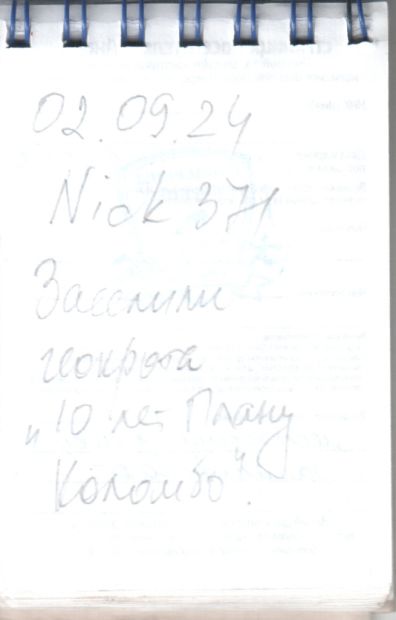 02.09.24
Nick 371
Заселили
геокрота
"10 лет Плану
Коломбо".